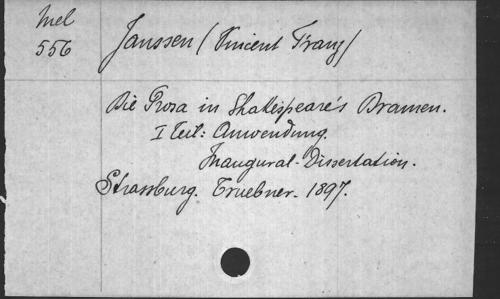 Mel
556
Janssen (Vincent Franz)
Die Prosa in Shakespeare's Dramen.
I Teil: Anwendung.
Inaugural-Dissertation.
Strassburg. Truebner. 1897.